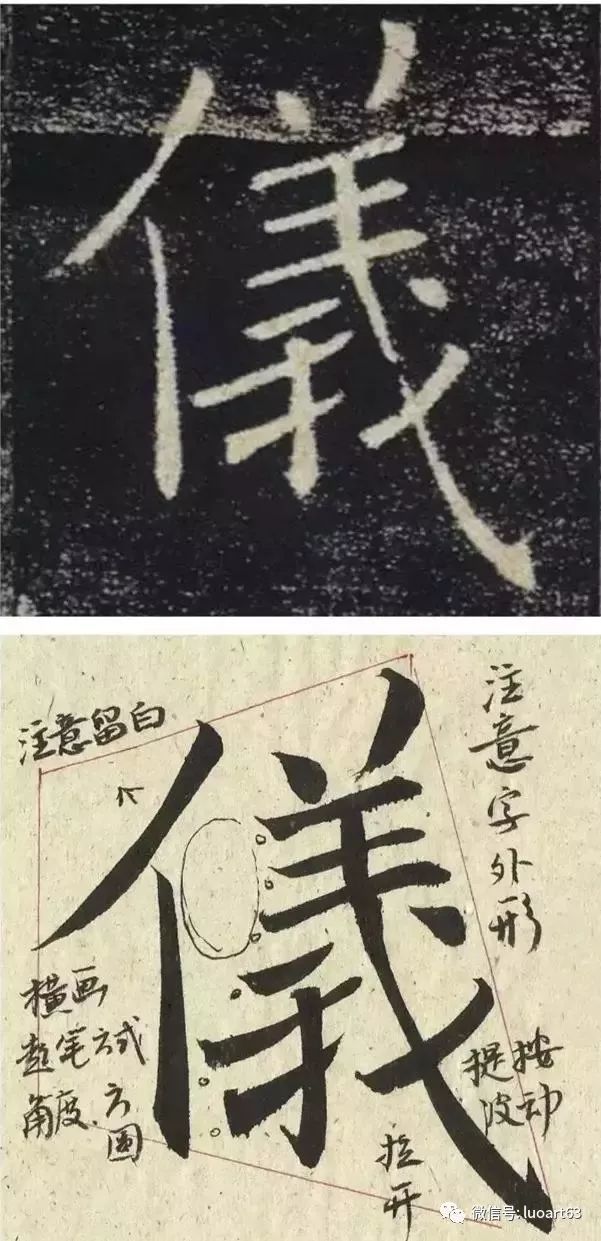 儀
注意留白
儀
注意字外形
横画
起笔方式
角度.方圆
提按
波动
拉开
微信号: luoart63